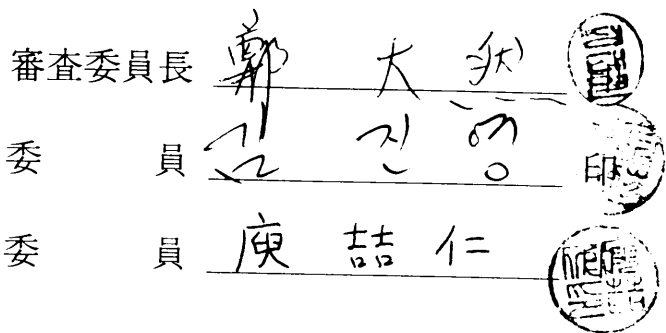 審査委員長 鄭 大
委 員 김 진 영 印
委 員 庾 喆 仁